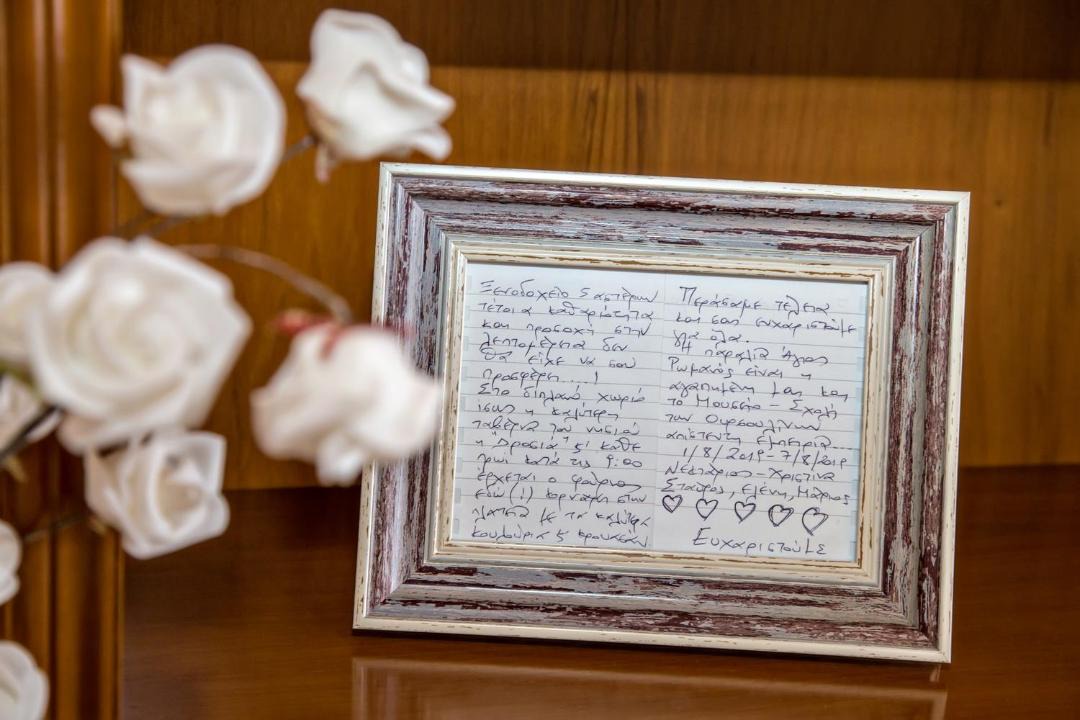 Ξενοδοχείο 5 αστέρων
τέτοια καθαριότητα
και προσοχή στην
λεπτομέρεια δεν
θα είχε να σου
προσφέρει....!
Στο διπλανό χωριό
ίσως η καλύτερη
ταβέρνα του νησιού
η "Δροσιά" κ' κάθε
πρωί κατά τις 9:00
έρχεται ο φούρνος
εδώ (!) κορνάρει στην
πλατεία με τα καλύτερα
κουλούρια κ κρουασάν
Περάσαμε τέλεια
και σας ευχαριστούμε
για όλα.
Η παραλία Άγιος
Ρωμανός είναι η
αγαπημένη μας και
το Μουσείο - Σχολή
των Ουρσουλίνων
απίστευτη εμπειρία
1/8/2019 - 7/8/2019
Νεκτάριος - Χριστίνα
Σταύρος, Ελένη, Μάριος
Ευχαριστούμε